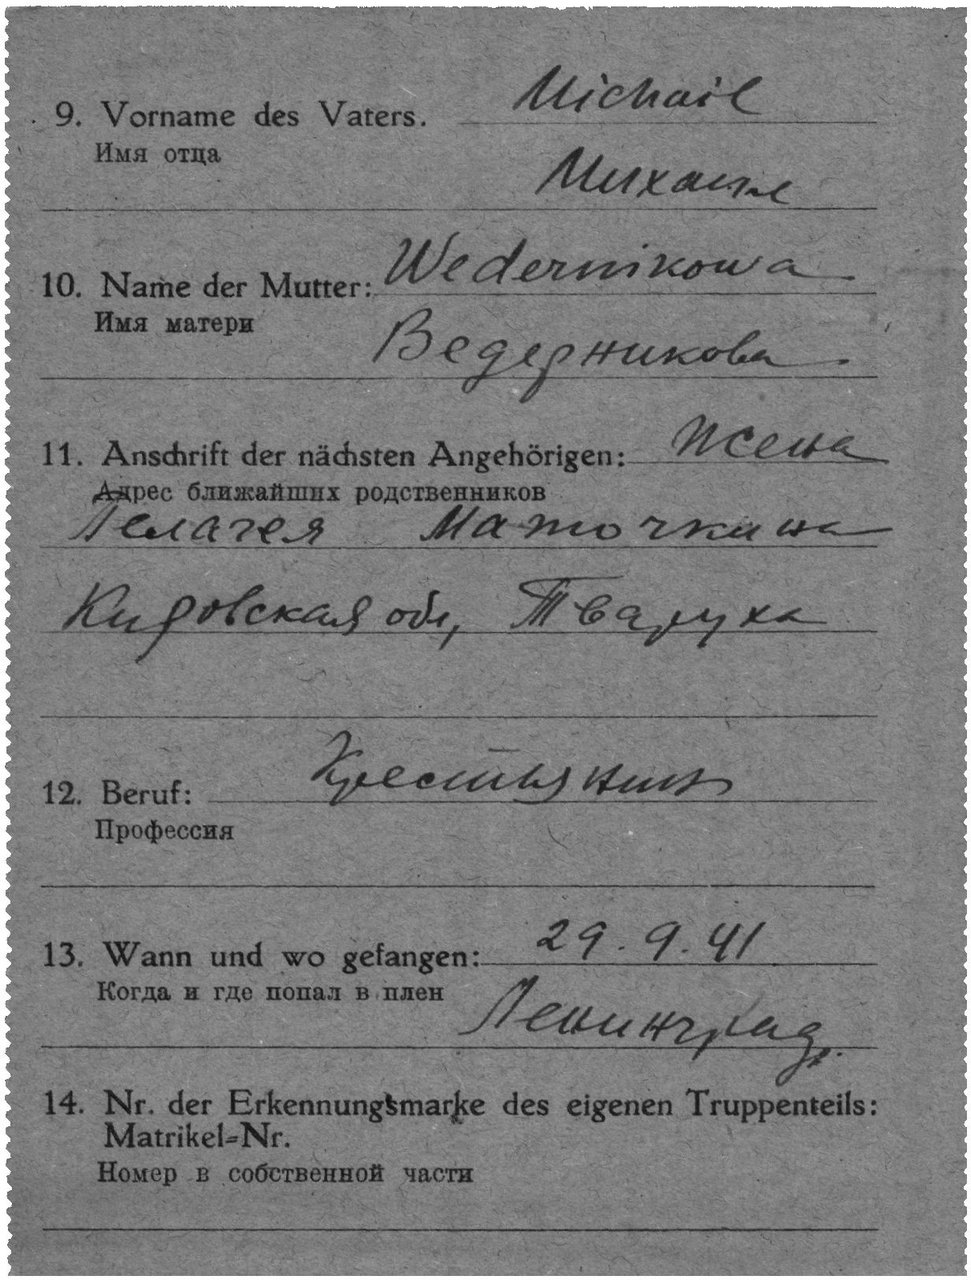 9. Vorname des Vaters. Michail
Имя отца
Михаил
10. Name der Mutter: Wedernikowa
Имя матери
Ведерникова
11. Anschrift der nächsten Angehörigen: Жена
Адрес ближайших родственников
Пелагея Маточкина
Кировская обл, Тваруха
12. Beruf: Крестьянин
Профессия
13. Wann und wo gefangen: 29.9.41
Когда и где попал в плен
Ленинград.
14. Nr. der Erkennungsmarke des eigenen Truppenteils:
Matrikel=Nr.
Номер в собственной части